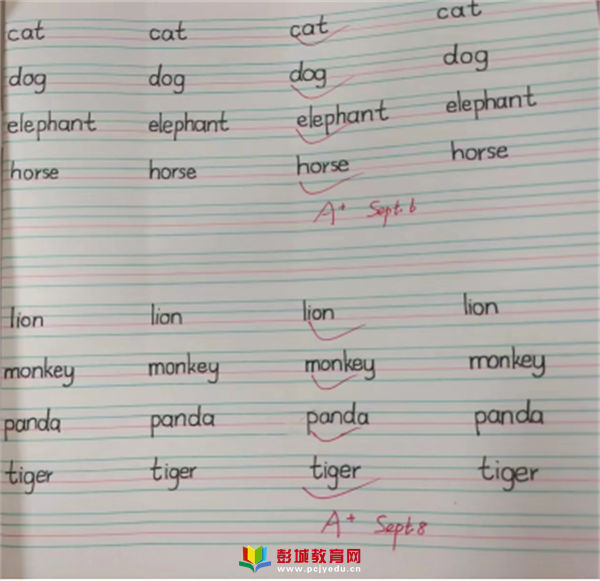 cat cat cat cat
dog dog dog dog
elephant elephant elephant elephant
horse horse horse horse
A+ Sept.6
lion lion lion lion
monkey monkey monkey monkey
panda panda panda panda
tiger tiger tiger tiger
A+ Sept.8
彭城教育网
www.pcjyedu.cn